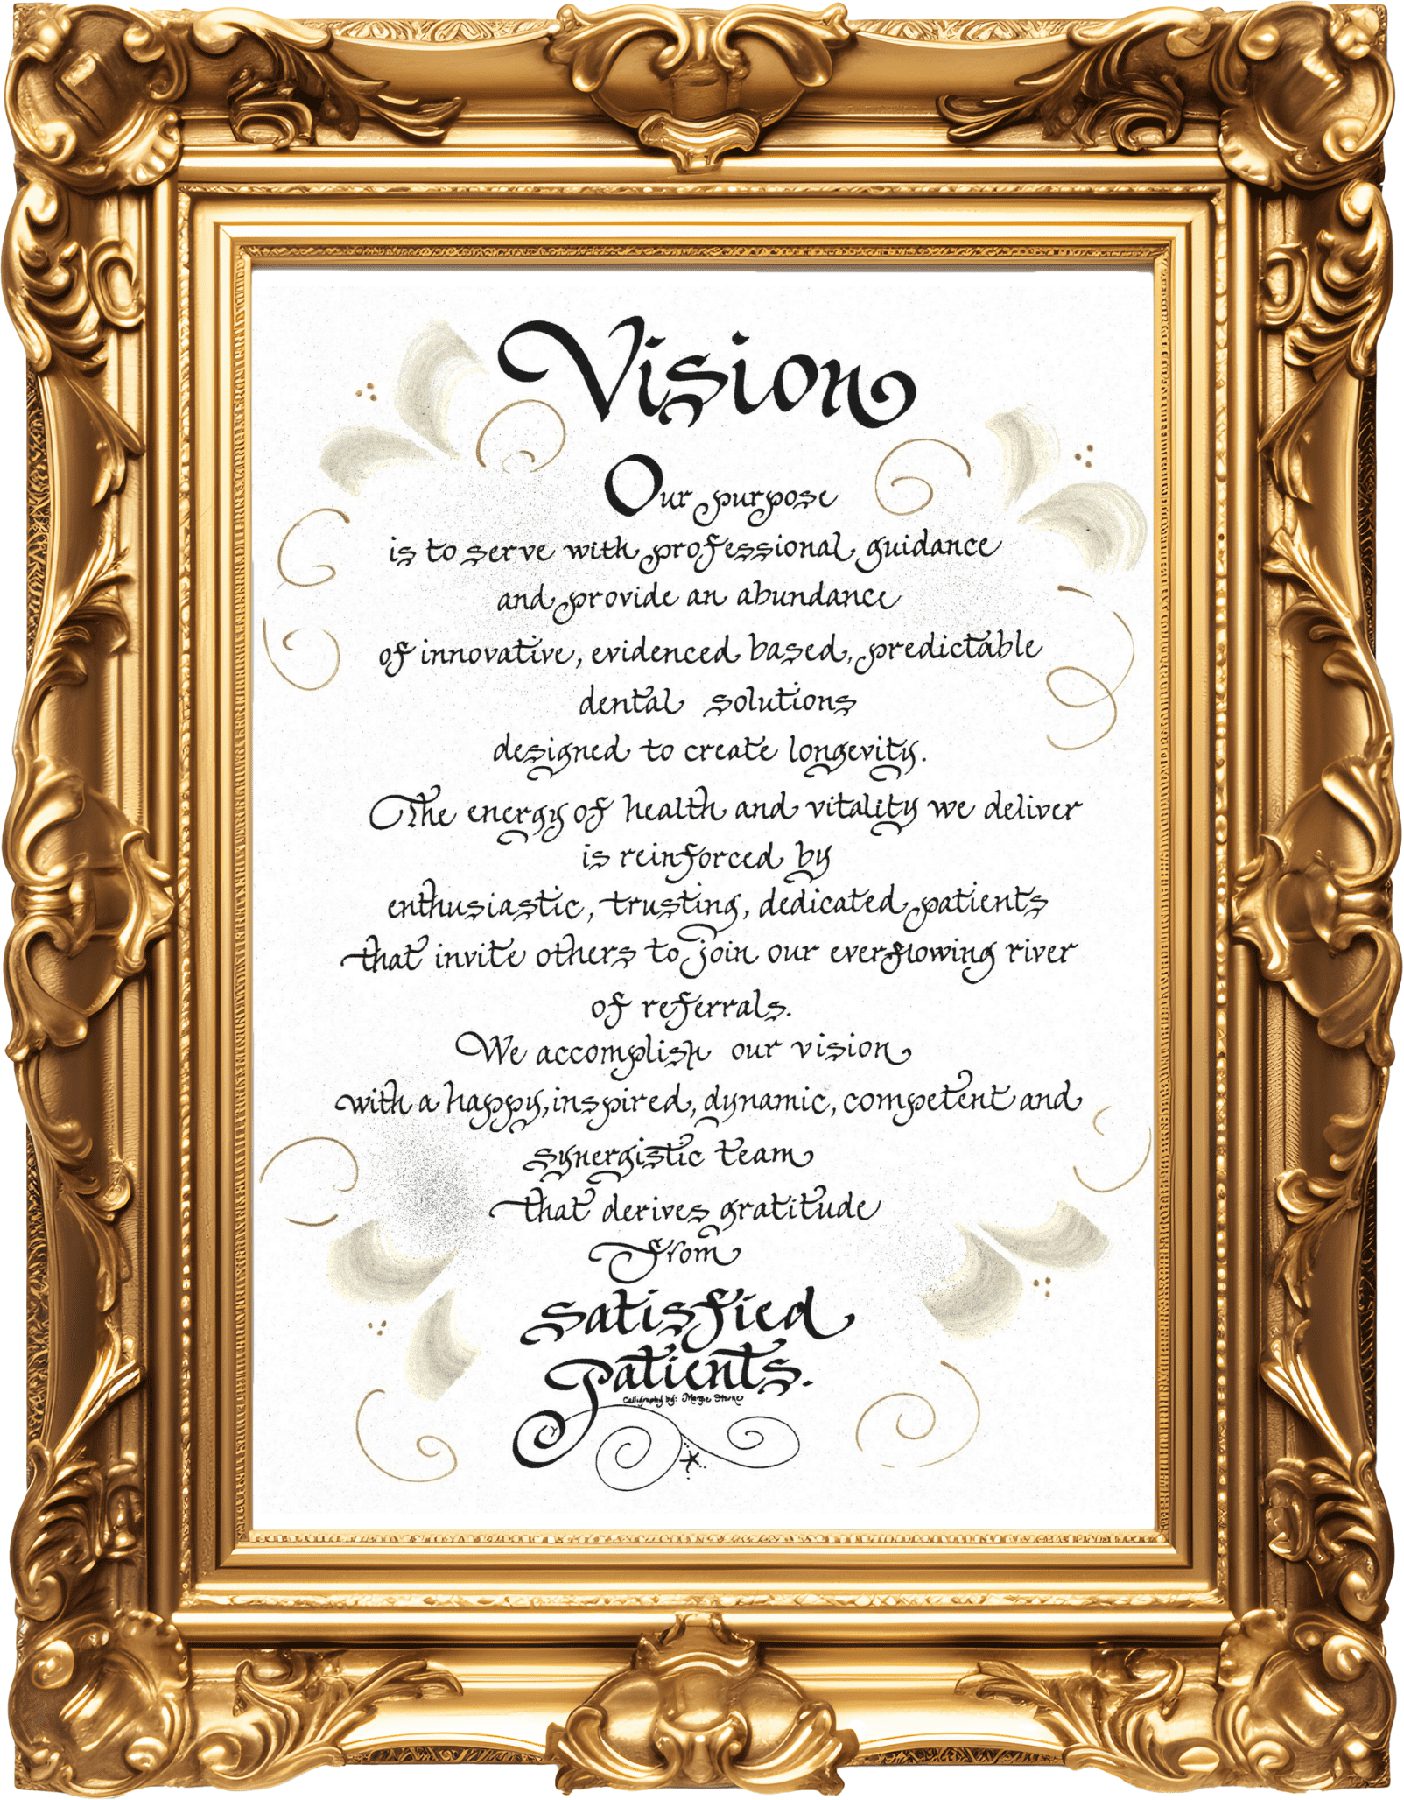 Vision
Our purpose
is to serve with professional guidance
and provide an abundance
of innovative, evidenced based, predictable
dental solutions
designed to create longevity.
The energy of health and vitality we deliver
is reinforced by
enthusiastic, trusting, dedicated patients
that invite others to join our everflowing river
of referrals.
We accomplish our vision
with a happy, inspired, dynamic, competent and
synergistic team
that derives gratitude
from
satisfied
patients.
Calligraphy by: Margie